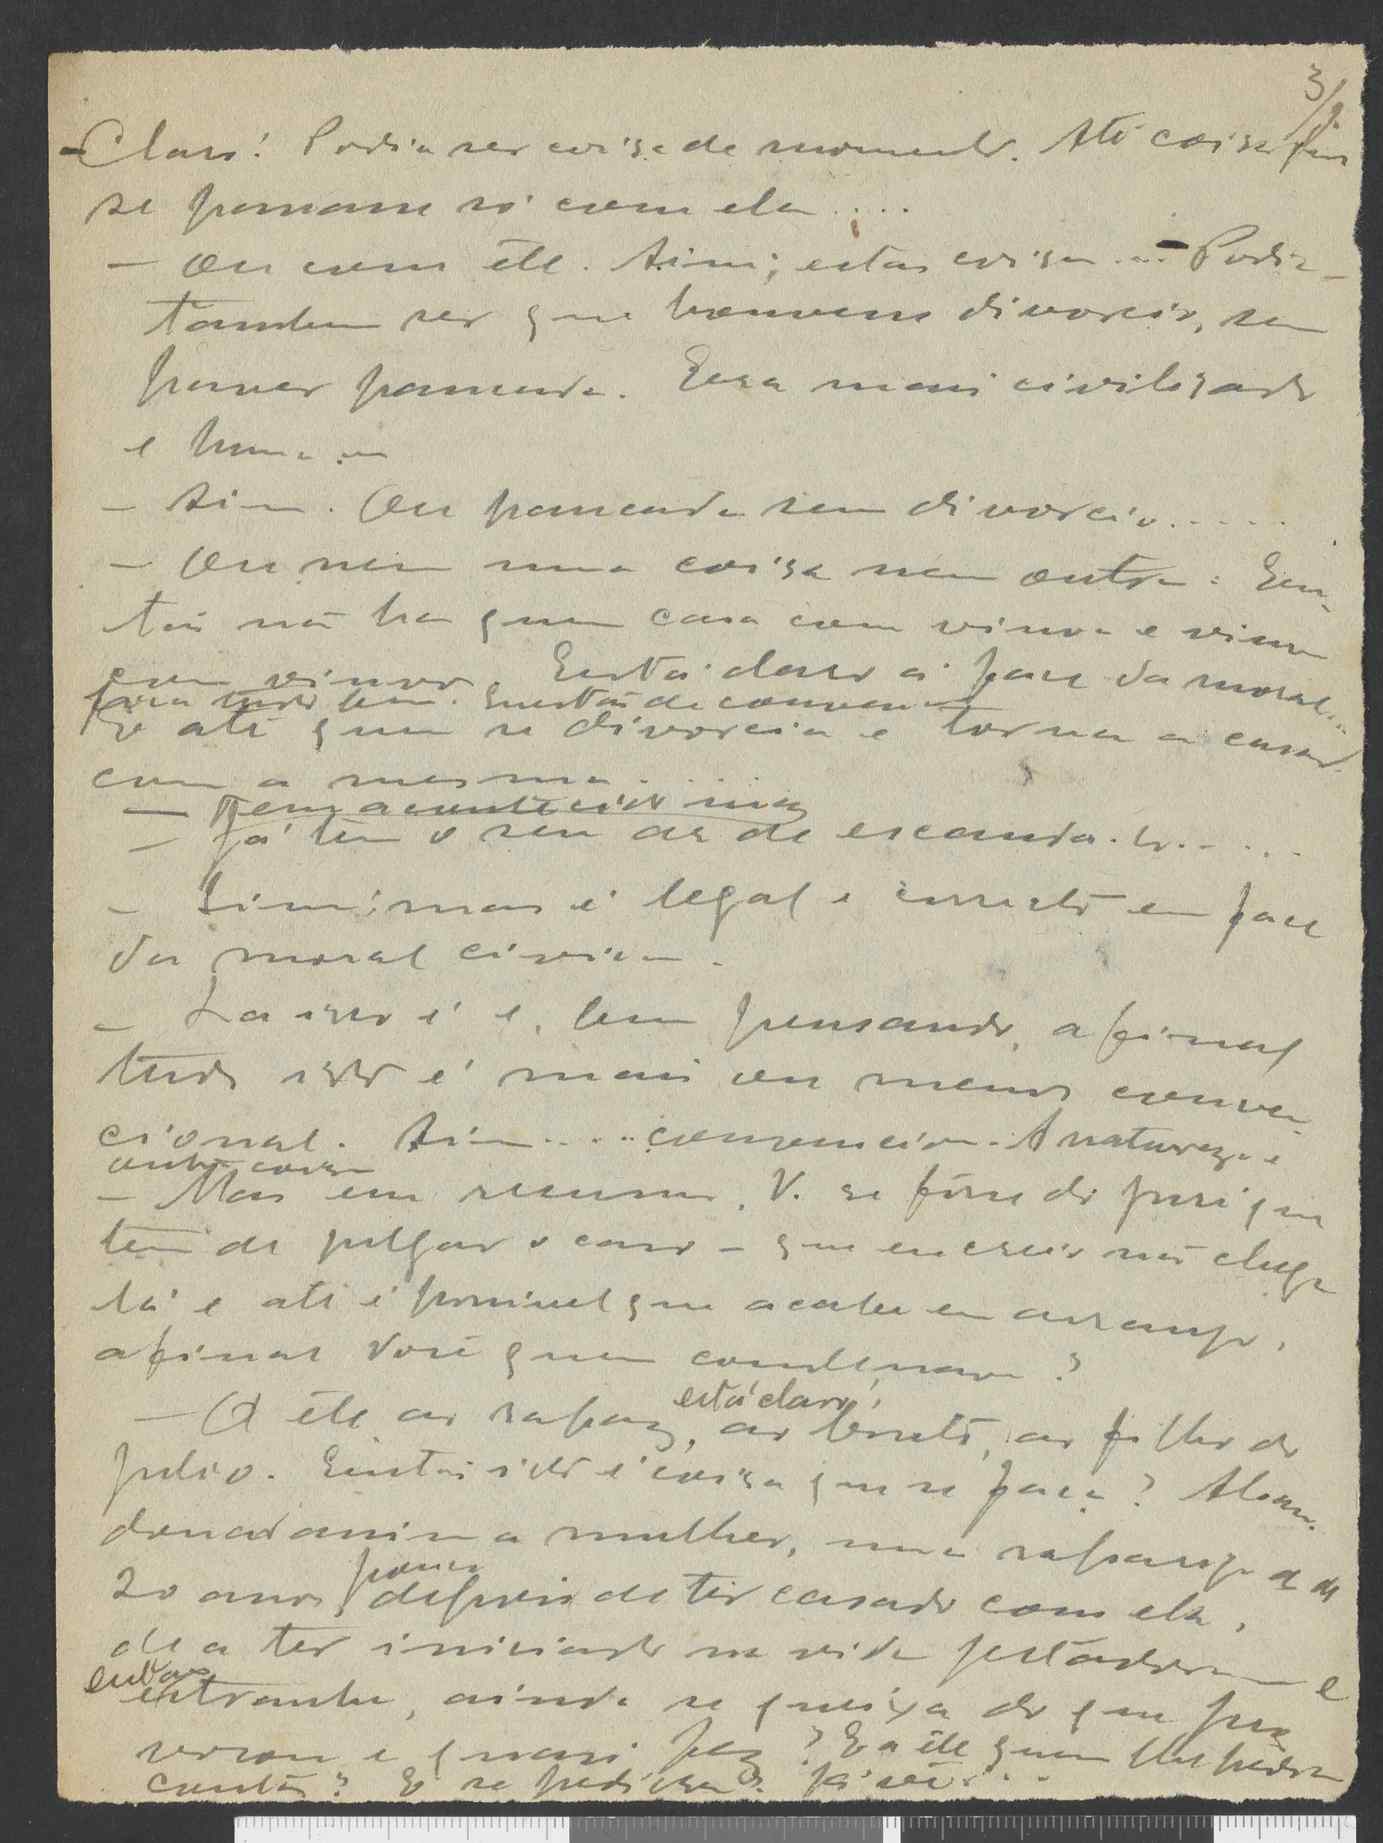 3/2
- Claro! Podia ser coisa de momento. Até coisa que
se passasse só com ela....
- Ou com êle. Sim; estas coisas... - Podia
tambem ser que houvesse divorcio, sem
haver pancada. Era mais civilisado
e humano
- Sim. Ou pancada sem divorcio.....
- Ou nem uma coisa nem outra. En-
tão não ha quem casa com viuva e viuva
com viuvo. Está claro á face da moral...
fica tudo bem. Questão de
E até quem se divorcia e torna a casar
com a mesma.....
- Tem acontecido mas
- Já tem o seu ar de escandalo.....
- Sim; mas é legal e correcto em face
da moral civica.
- Lá isso é e, bem pensando, afinal
tudo isto é mais ou menos conven-
cional. Sim..... convenção. A natureza é
outra coisa
- Mas em resumo, V. se fôsse do juri que
tem de julgar o caso - que eu creio não chega
lá e até é possivel que acabe em arranjo,
afinal você quem condenava?
- A êle ao rapaz, está claro! ao neto, ao filho do
Julio. Então isto é coisa que se faça? Aban-
donar assim a mulher, uma rapariga de
20 anos pouco depois de ter casado com ela,
de a ter iniciado na vida e
, ainda se queixa do que
e quasi fez? E a êle quem lhe pedia
contas? E se pedissem? Já vê...